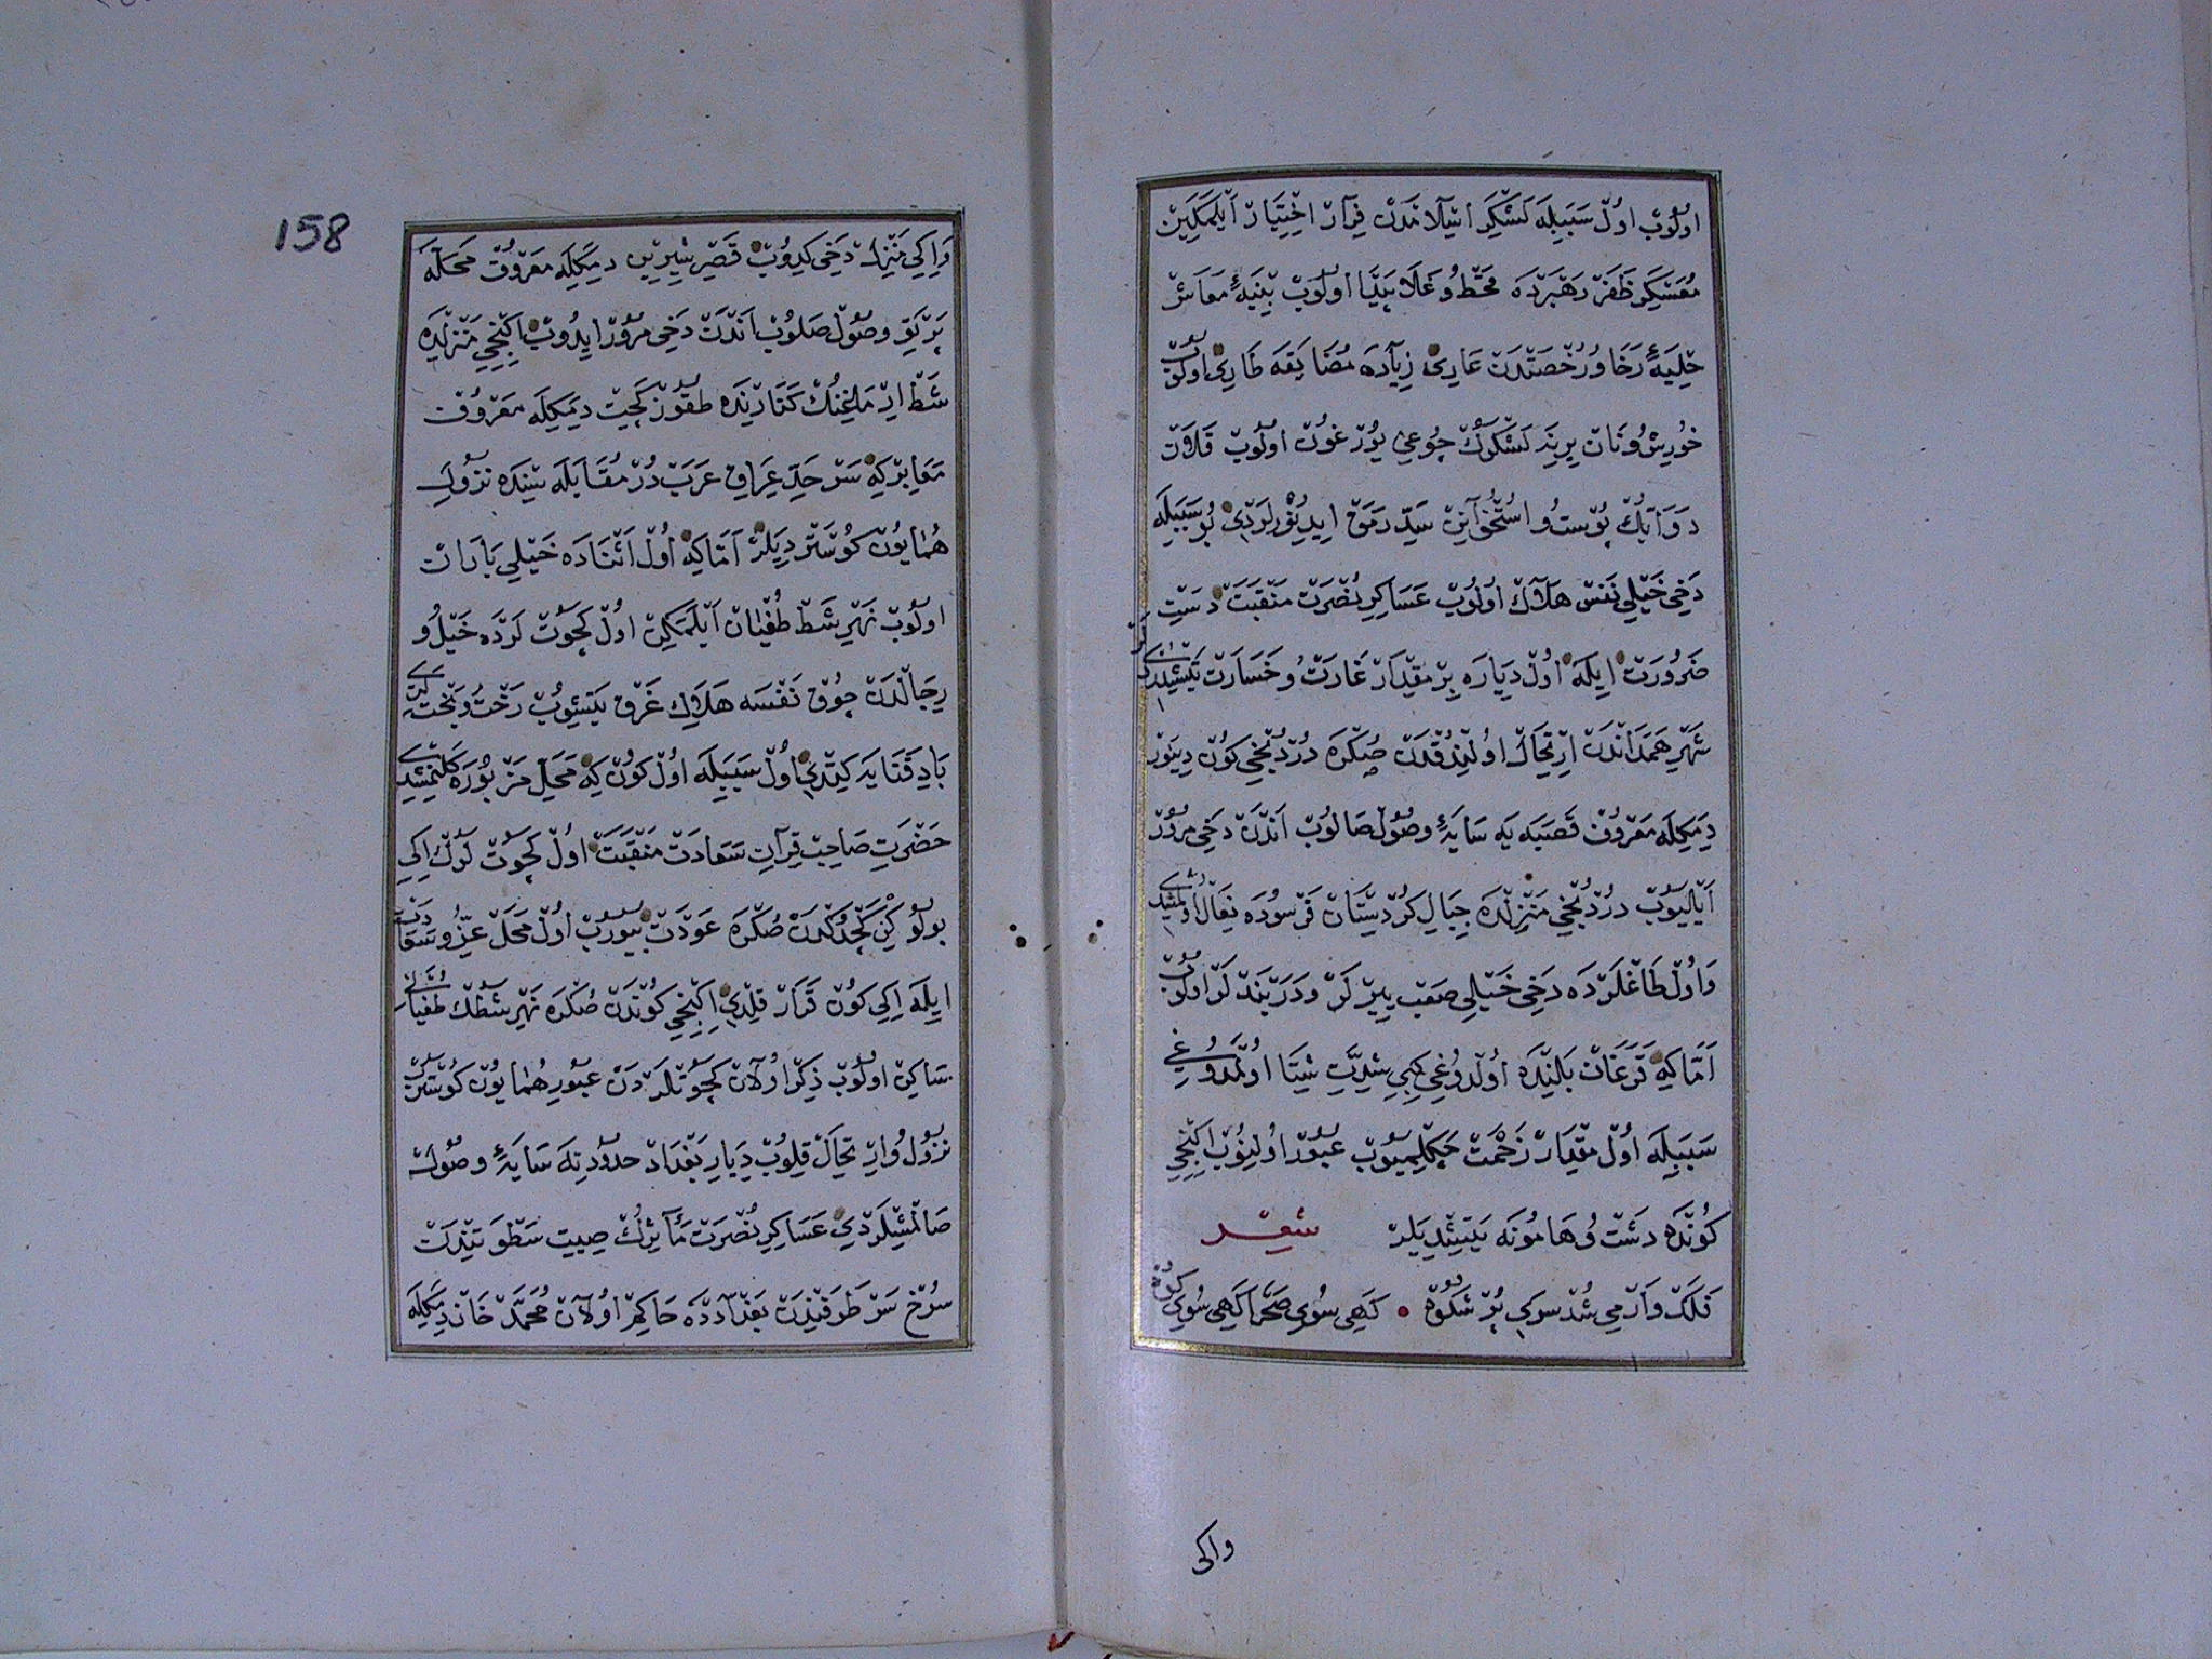 اولوب اول سببله لشكر استیلاسندن فرار اختیار ایلمكین
معسكر ظفر رهبرده قحط و غلا پیدا اولوب بنیهٔ معاش
حلیهٔ رخا و رخصتدن عاری زیاده مضایقه طاری اولوب
خورش و نان یرینه لشكرك جوعی یورغون اولوب قلان
دوابك پوست و استخوانن سد رمق ایدینورلردی بو سببله
دخی خیلی نفس هلاك اولوب عساكر نصرت منقبت دست
ضرورت ایله اول دیاره بر مقدار غارت و خسارت یتشدردیلر
شهر همداندن ارتحال اولندقدن صكره دردنجی كون دینور
دیمكله معروف قصبه یه سایهٔ وصول صالوب اندن دخی مرور
ایلیوب دردنجی منزلده جبال كردستان فرسوده نعال اولمشیدی
و اول طاغلرده دخی خیلی صعب ییرلر و دربندلر اولوب
اما كه قزغان بلنده اولدوغی كبی شدت شتا اولمدوغی
سببله اول مقدار زحمت چكلمیوب عبور اولنوب ایكنجی
كونده دشت و هامونه یتشدیلر شعر
فلك وار می شد سوی پر شكوه • كهی سوی صحرا كهی سوی كوه
واكی
158
و ایكی منزل دخی كیدوب قصر شیرین دیمكله معروف محله
پرتو وصول صلوب اندن دخی مرور ایدوب ایكنجی منزلده
شط ارماغینك كنارنده طقوز كچیت دیمكله معروف
معابر كه سرحد عراق عربدر مقابله سنده نزول
همایون كوستردیلر اما كه اول اثناده خیلی باران
اولوب نهر شط طغیان ایلمكین اول كچوتلرده خیل و
رجالدن چوق نفسه هلاك غرق یتشوب رخت و بختلری
باد فنایه كیتدی اول سببله اول كون كه محل مزبوره كلنمشیدی
حضرت صاحب قران سعادت منقبت اول كچوتلرك ایكی
بولوكن كچدكدن صكره عودت بیوروب اول محل عز و سعادت
ایله ایكی كون قرار قلدی ایكنجی كوندن صكره نهر شطك طغیانی
ساكن اولوب ذكر اولان كچوتلردن عبور همایون كوستروب
نزول و ارتحال قلوب دیار بغداد حدودینه سایهٔ وصول
صالمشلردی عساكر نصرت مآثرك صیت سطوتندن
سرخ سر طرفندن بغدادده حاكم اولان محمد خان دیمكله